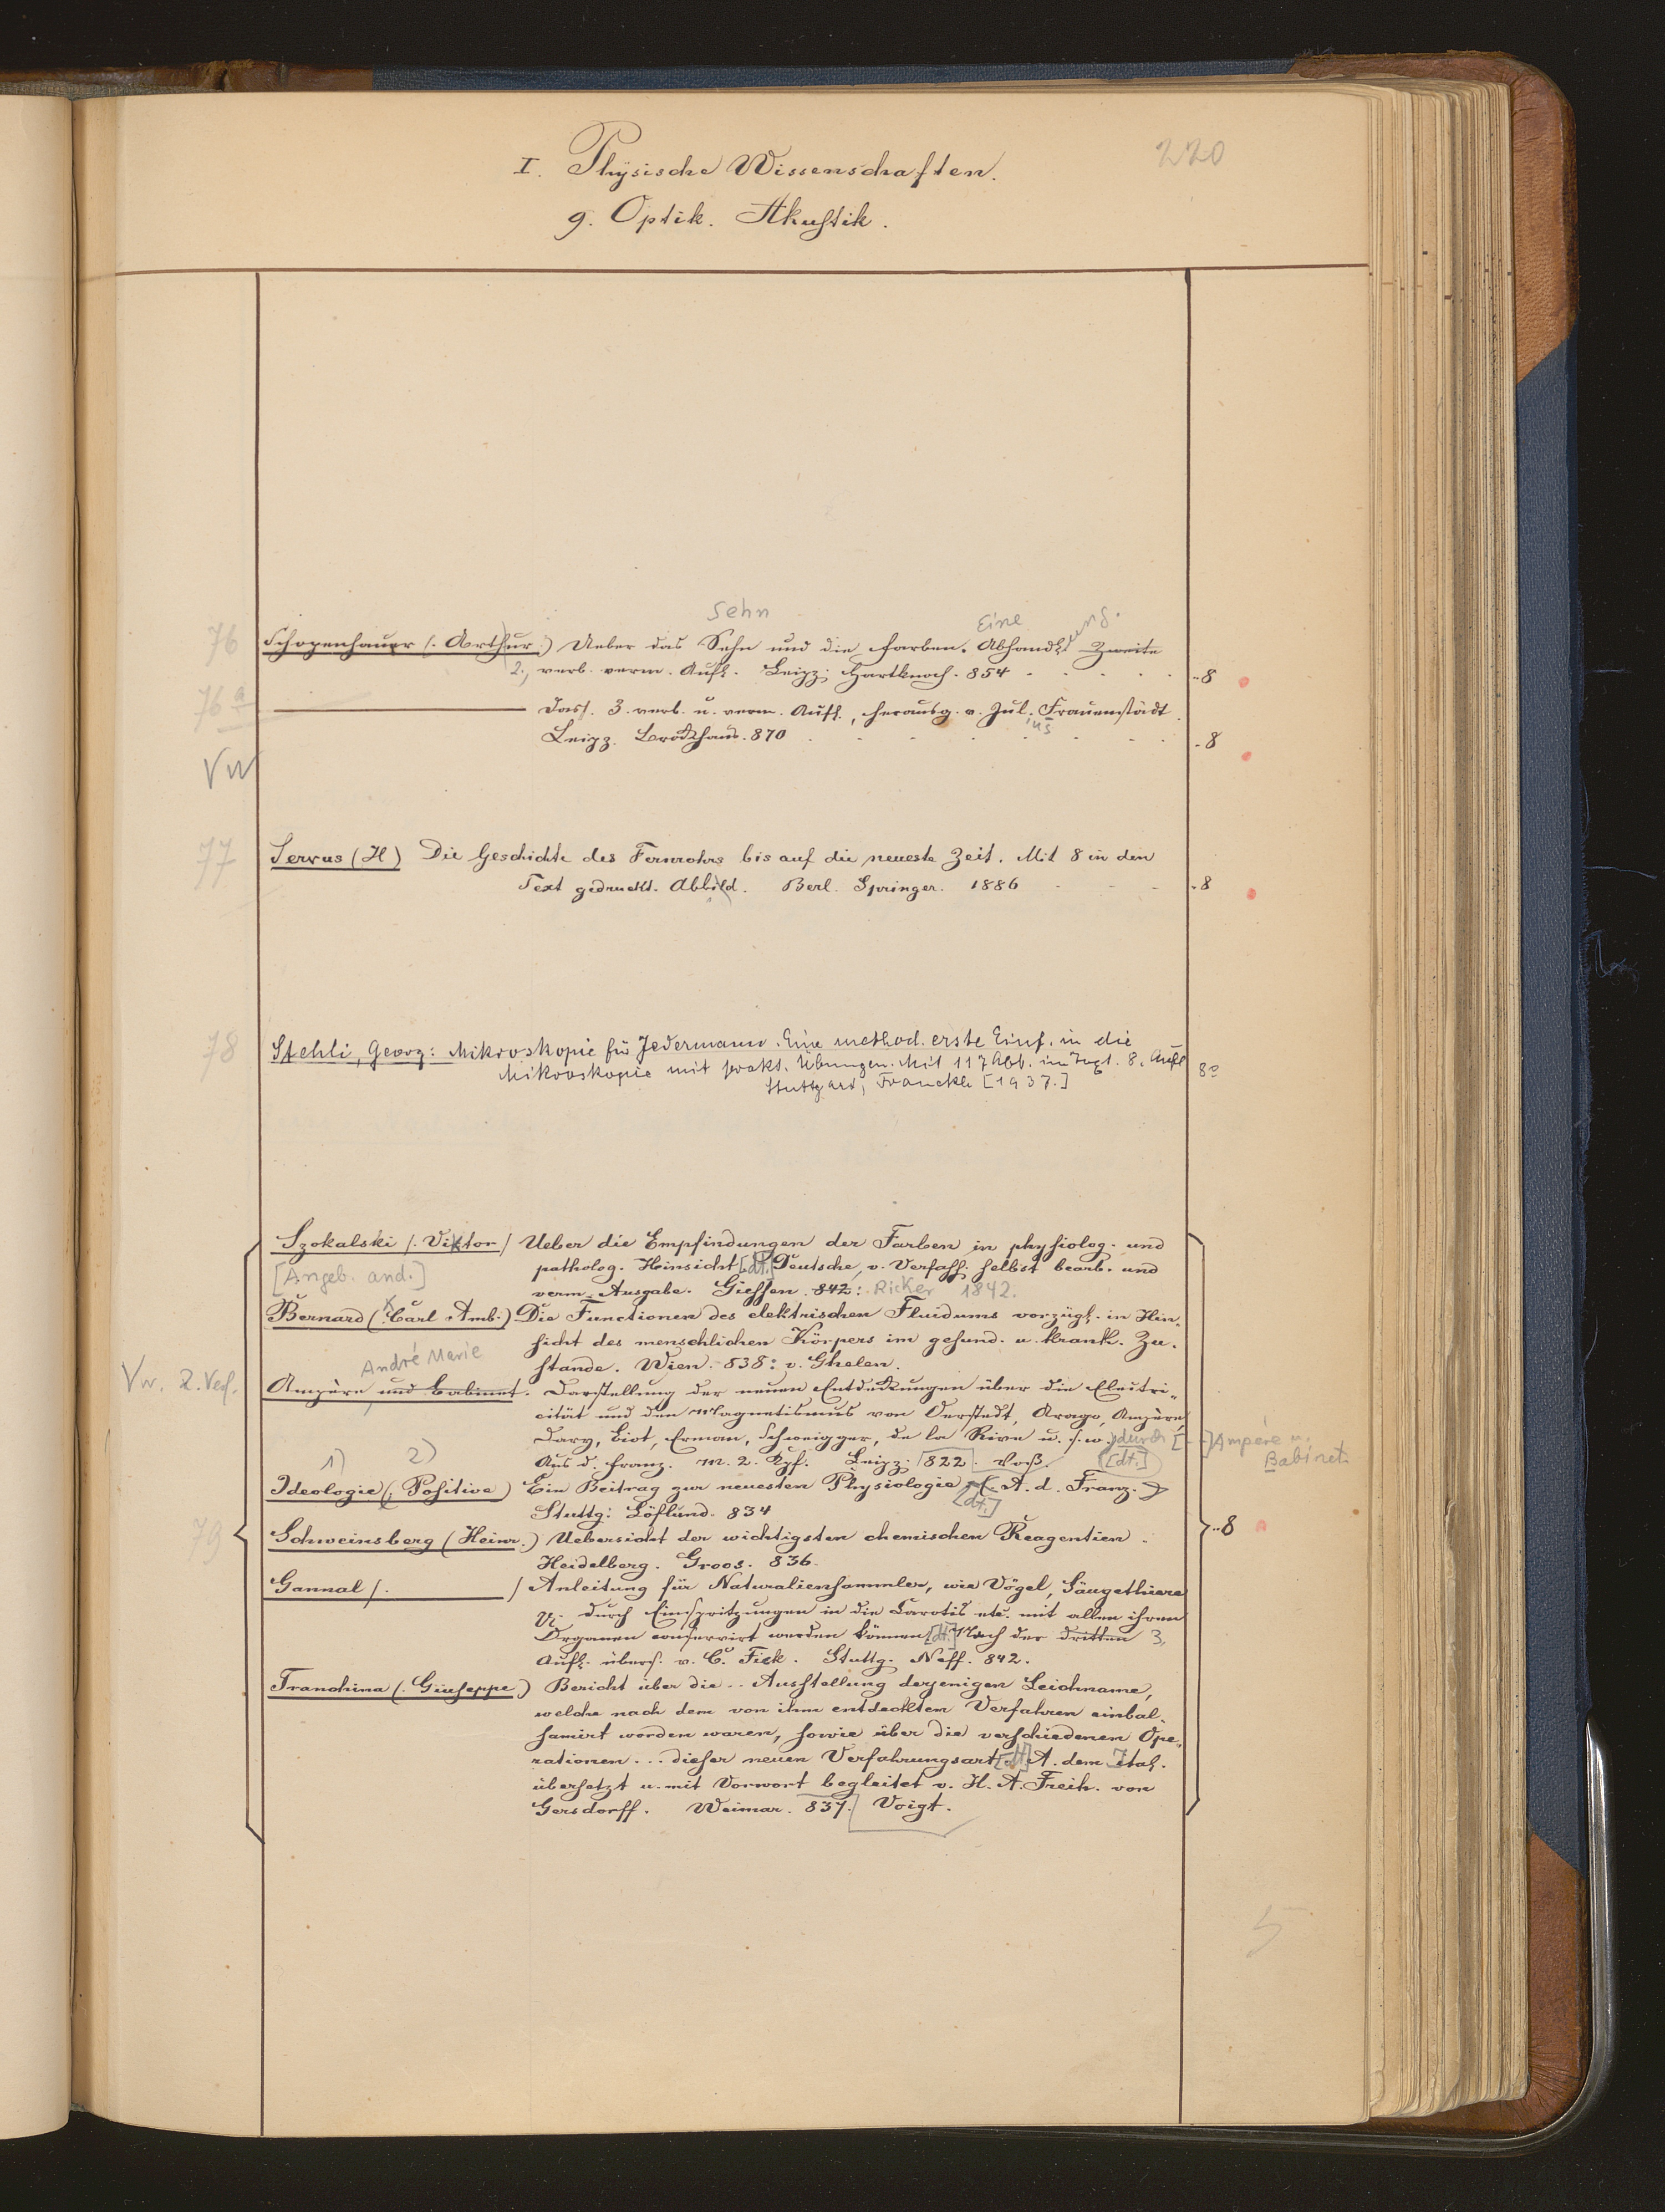 220
I. Physische Wissenschaften.
g. Optik. Akustik.
Sehn Eine ung.
76 Schopenhauer (. Arthur.) Ueber das Sehn und die Farben. Abhandl. Zweite
2., verb. verm. Aufl. Leipz: Hartknoch. 854 . . . . . .. 8
76a ——— Dass. 3. verb. u. verm. Aufl., herausg. v. Jul. Frauenstädt.
us
Leipz. Brockhaus. 870 . . . . . . - 8
Vw
77 Servus (H) Die Geschichte des Fernrohrs bis auf die neueste Zeit. Mit 8 in den
Text gedruckt. Abbild. Berl. Springer. 1886 - - - - 8
78 Stehli, Georg: Mikroskopie für Jedermann. Eine method. erste Einf. in die
Mikroskopie mit prakt. Übungen. Mit 117 Abb. im Text. 8. Aufl. 8°
Stuttgart, Franckh [1937.]
Szokalski (. Viktor) Ueber die Empfindungen der Farben in physiolog. und
[Angeb. and.] patholog. Hinsicht [dt.] Deutsche, v. Verfass. selbst bearb. und
verm. Ausgabe. Giessen. 842: Ricker 1842.
Bernard (. Carl Amb.) Die Functionen des elektrischen Fluidums vorzügl. in Hin-
sicht des menschlichen Körpers im gesund. u. krank. Zu-
André Marie
stande. Wien. 838: v. Ghelen.
Vw. 2. Verf. Ampère und Babinet. Darstellung der neuen Entdeckungen über die Electri-
cität und den Magnetismus von Oerstedt, Arago, Ampère,
Davy, Biot, Erman, Schweigger, de la Rive u. s. w. durch [--] Ampère u.
Babinet.
Aus d. Franz. M. 2. Kpf. Leipz: 822. Voß. [dt.]
1) 2)
Ideologie (. Positive) Ein Beitrag zur neuesten Physiologie (. A. d. Franz.)
[dt.]
Stuttg: Löflund. 834
79 Schweinsberg (Heinr.) Uebersicht der wichtigsten chemischen Reagentien. .. 8
Heidelberg. Groos. 836.
Gannal (. ——— ) Anleitung für Naturaliensammler, wie Vögel, Säugethiere
durch Einspritzungen in die Carotis etc. mit allen ihren
Organen conservirt werden können [dt.] Nach der dritten 3.
Aufl. übers. v. C. Fick. Stuttg. Neff. 842.
Tranchina (. Giuseppe) Bericht über die .. Ausstellung derjenigen Leichname,
welche nach dem von ihm entdecktem Verfahren einbal-
samirt worden waren, sowie über die verschiedenen Ope-
rationen ... dieser neuen Verfahrungsart [dt] A. dem Ital.
übersetzt u. mit Vorwort begleitet v. H. A. Freih. von
Gersdorff. Weimar. 837. Voigt.
5